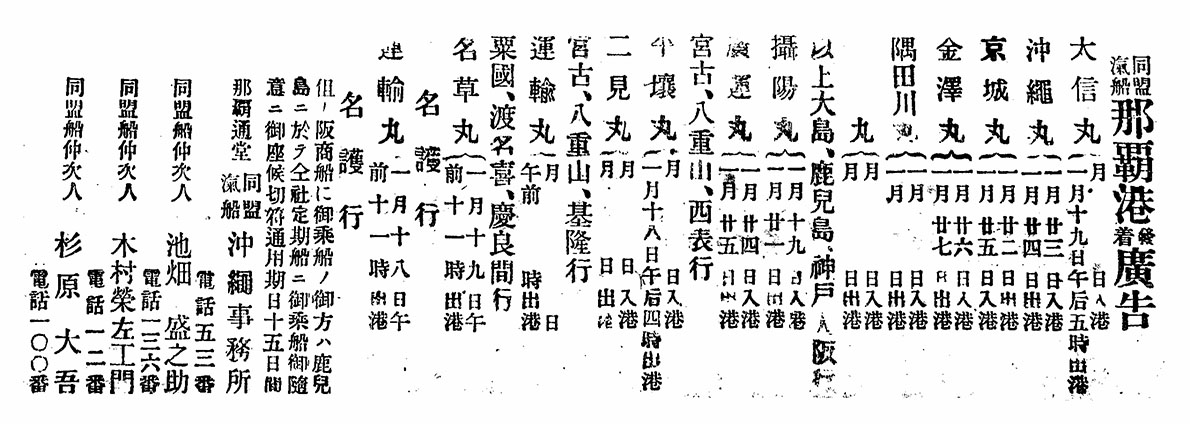 同盟汽船那覇港發着廣告
大信丸 月 日入港
一月十九日午后五時出港
沖繩丸 一月廿三日入港
一月廿四日出港
京城丸 一月廿二日出港
一月廿五日入港
金澤丸 一月廿六日入港
一月廿七日出港
隅田川丸 月 日入港
一月 日出港
丸 月 日入港
月 日出港
以上大島、鹿兒島、神戸、大阪行
攝陽丸 一月十九日入港
一月廿一日出港
廣運丸 一月廿四日入港
一月廿五日出港
宮古、八重山、西表行
平壤丸 月 日入港
一月十八日午后四時出港
二見丸 月 日入港
月 日出港
宮古、八重山、基隆行
運輸丸 月 日
午前 時出港
粟國、渡名喜、慶良間行
名草丸 一月十九日午
前十一時出港
名護行
運輸丸 一月十八日午
前十一時出港
名護行
但ノ阪商船に御乘船ノ御方ハ鹿兒
島ニ於テ仝社定期船ニ御乘船御隨
意ニ御座候切符通用期日十五日間
那覇通堂 同盟汽船 沖繩事務所
電話五三番
同盟船仲次人 池畑盛之助
電話一三六番
同盟船仲次人 木村榮左工門
電話一二番
同盟船仲次人 杉原大吾
電話一〇〇番